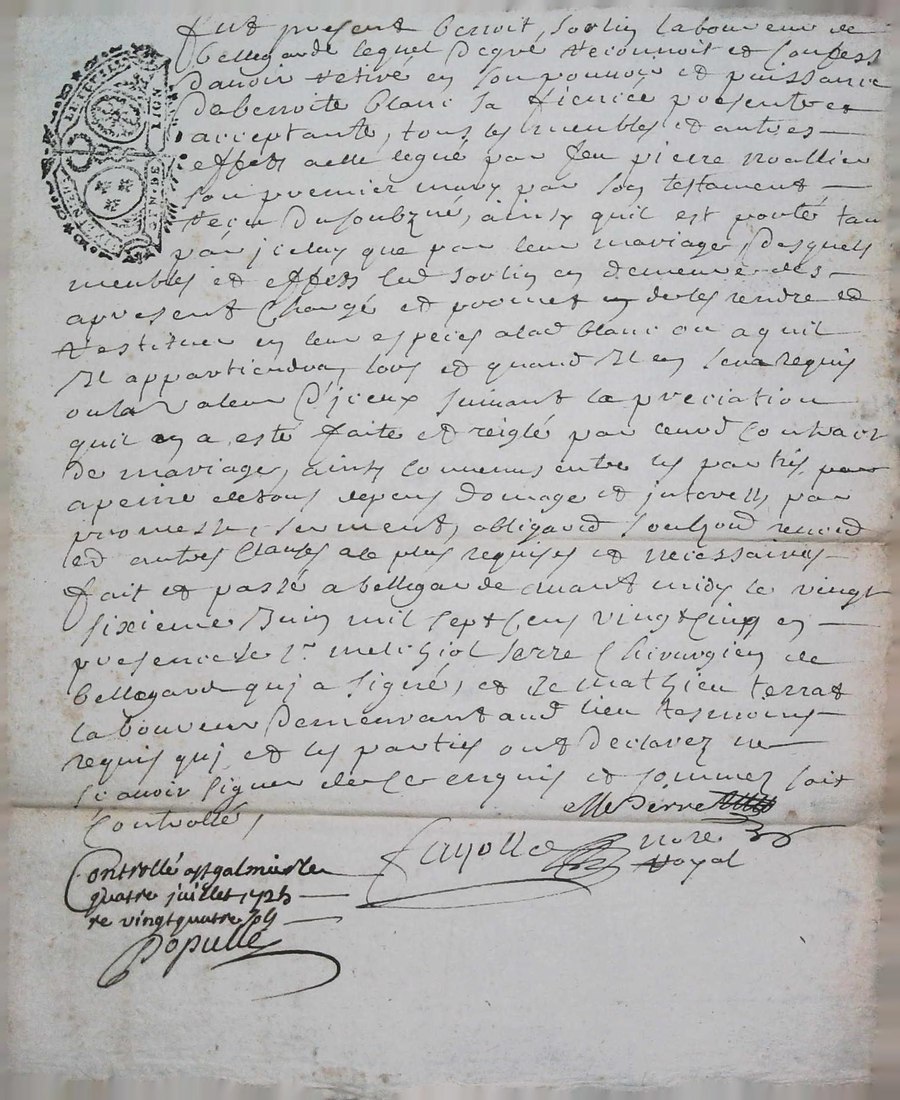 fut présent Benoit Sorlin laboureur de
bellegarde lequel degré reconnoit et confess
d'avoir retiré en son pouvoir et puissance
de benoite blanc sa fiencée presente et
acceptante, tous les meubles et autres
effets a elle legué par feu pierre noallier
son premier mary par son testament
reçu du soubzné, ainsy quil est porté tan
par jceluy que par leur mariage, desquels
meubles et effets led Sorlin en demeure des
apresent chargé et promet de les rendre et
restituer en leur especes alad blanc ou a quil
Il appartiendra, lors et quand Il en sera requis
ou la valeur d'jceux suivant la preciation
quil en a esté faite et reiglé par leurd contract
de mariage, ainsy convenu entre les parties
apeine de tous depens domage et jnterests, par
promesse, serment, obligaon soubzon renon
et autres clauses a le plus requises et necessaires
fait et passé a bellegarde avant midy le vingt
sixieme Juin mil sept cens vingt cinq en
presence de Sr melchiol Serre chirurgien de
bellegarde quj a signé, et de Mathieu terrat
laboureur demeurant aud lieu tesmoins
requis quj et les parties ont declarez ne
sçavoir signer de ce enquis et sommez soit
controllé,
Fayolle
nore
Royal
Controllé a st galmier le
quatre juillet 1725
re vingt quatre sols
Populle
GEN DE LION